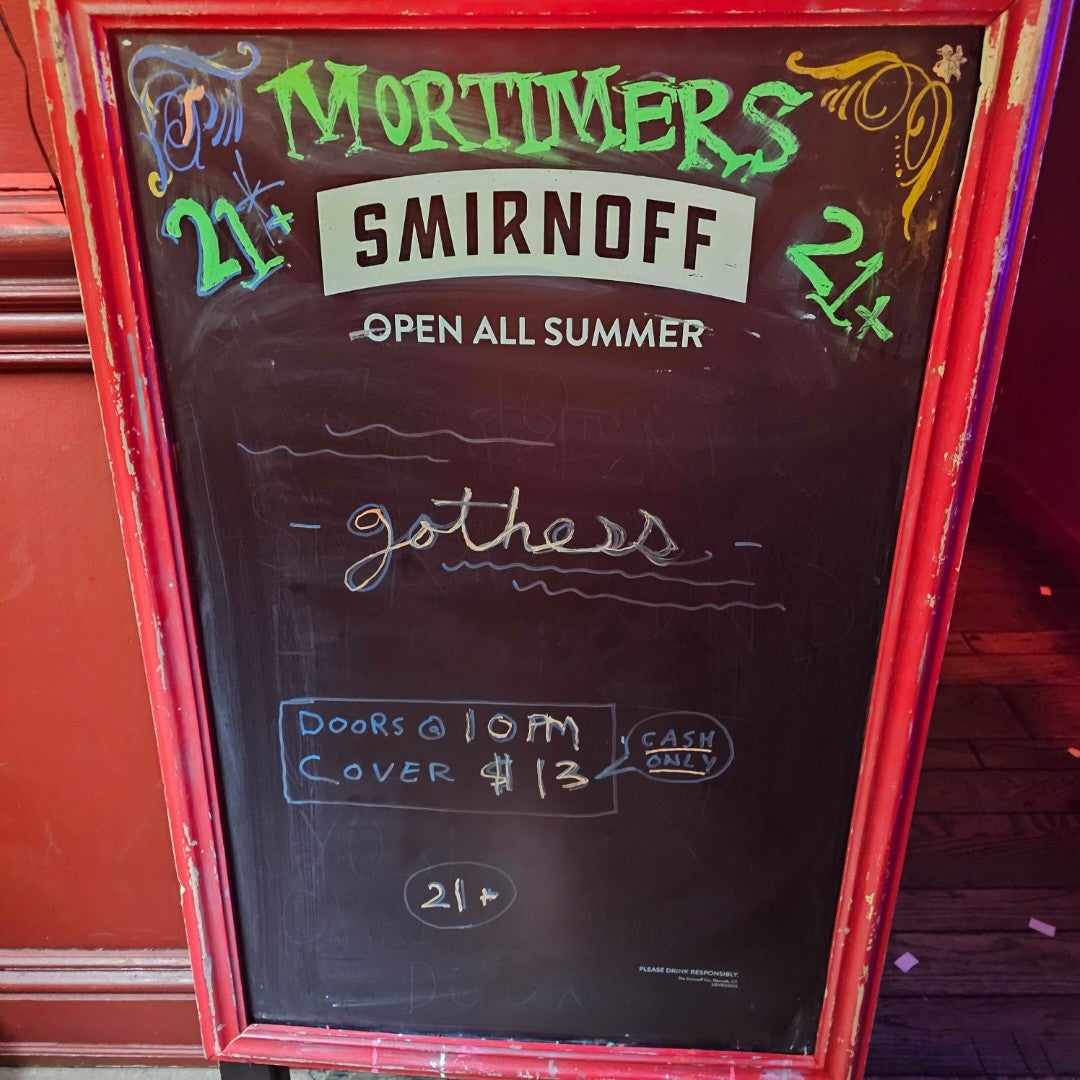 MORTIMERS
21+
SMIRNOFF
21+
OPEN ALL SUMMER
- gothess -
DOORS @ 10PM
COVER $13
CASH
ONLY
21+
PLEASE DRINK RESPONSIBLY.